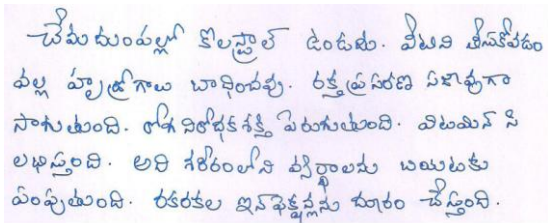 చేమదుంపల్లో కొలెస్ట్రాల్ ఉండదు. వీటిని తీసుకోవడం
వల్ల హృద్రోగాలు బాధించవు. రక్తప్రసరణ సజావుగా
సాగుతుంది. రోగ నిరోధకశక్తి పెరుగుతుంది. విటమిన్ సి
లభిస్తుంది. అది శరీరంలోని వ్యర్థాలను బయటకు
పంపుతుంది. రకరకల ఇన్‌ఫెక్షన్లను దూరం చేస్తుంది.